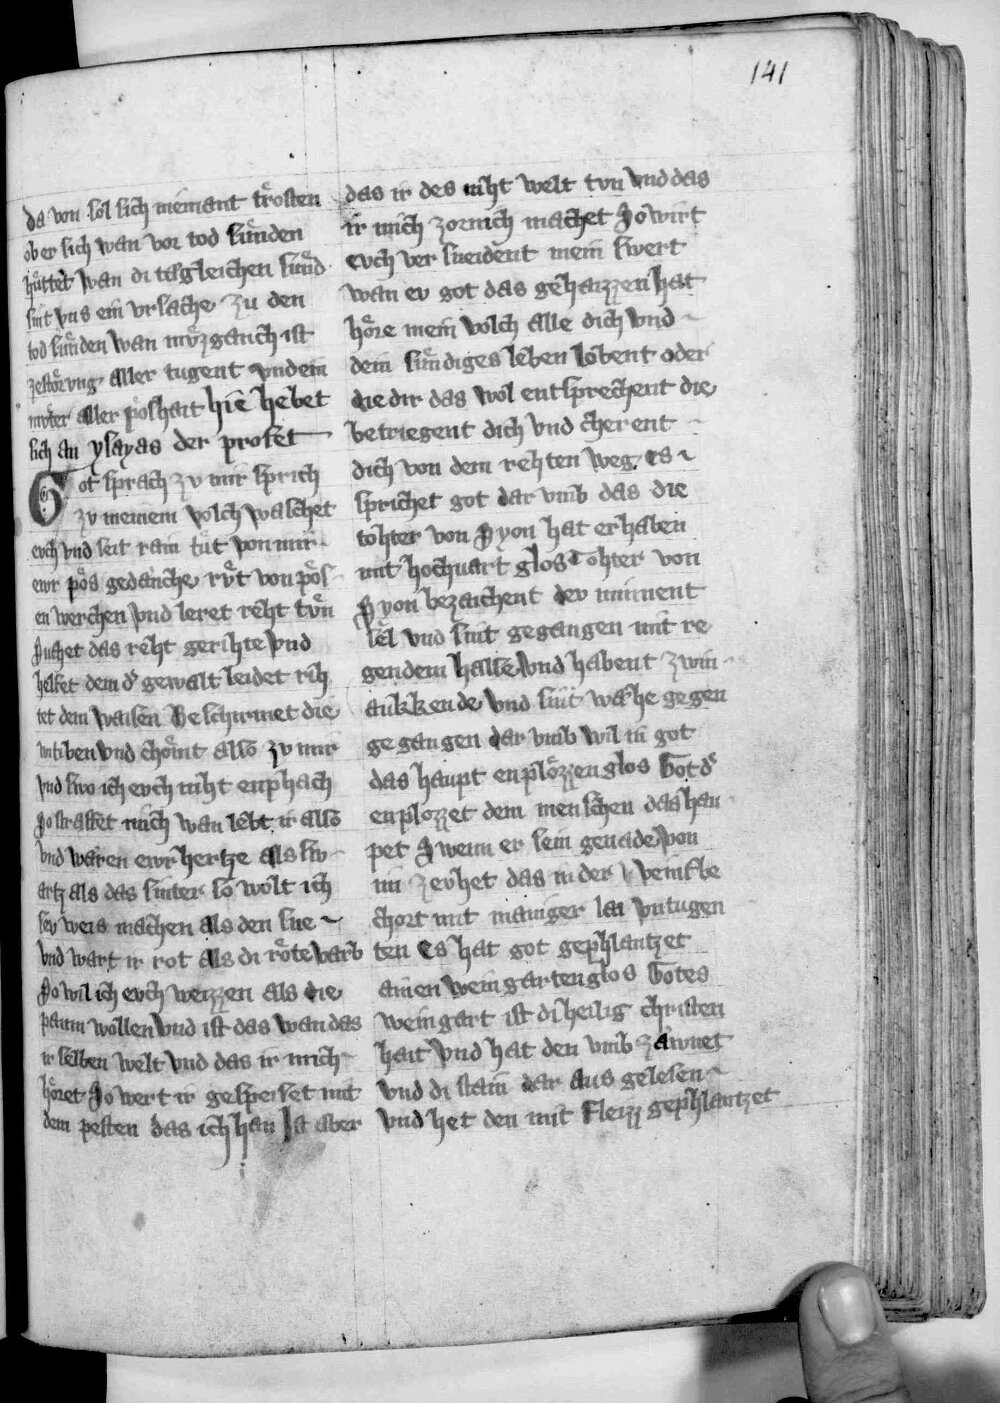 141
da von sol sich niemant trösten
ob er sich wan vor tod sünden
hüttet wan di tægleichen sünd
sint uns ein ursache zu den
tod sünden wan müzganch ist
zestörung aller tugent und ein
muter aller poshait hie hebet
sich an ysayas der profet
Got sprach zv mir sprich
zv meinem volch waschet
evch und seit rain tüt von mir
ewr pös gedanche rüt von pös
en werchen und leret reht tün
suchet das reht gerihte und
helfet dem der gewalt leidet rih
tet dem waisen Beschirmet die
witiben und chömt also zv mir
und swo ich evch niht enphach
so straffet mich wan lebt ir also
und waren ewr hertze als sw
artz als das sinter so wolt ich
sev weis machen als den sne
und wart ir rot als di röte varb
so wil ich evch weizzen als die
paum wollen und ist das wan das
ir selben welt und das ir mich
höret so wert ir gespeiset mit
dem pesten das ich han Ist aber
das ir des niht welt tvn und das
ir mich zornich machet so wirt
evch versneident mein swert
wan ev got das gehaizzen hat
höre mein volch alle dich und
dein sündiges leben lobent oder
die dir das wol entsprechent die
betriegent dich und cherent
dich von dem rehten weg es
sprichet got dar umb das die
tohter von Syon hat erhaben
mit hochvart glos Tohter von
Syon bezaichent dev minnent
sel und sint gegangen mit re
gendem halse und habent zwin
aukkende und sint wæhe gegen
gegangen dar umb wil in got
das haupt enplözzen glos Got der
enplozzet dem menschen das hau
pet Swenn er sein genade von
im zevhet das in der veint be
chort mit maniger lai untugen
ten Es hat got gephlantzet
ainen weingarten glos Gotes
weingart ist di heilig christen
hait und hat den umb zæwnet
und di stain dar aus gelesen
und het den mit fleizz gephlantzet